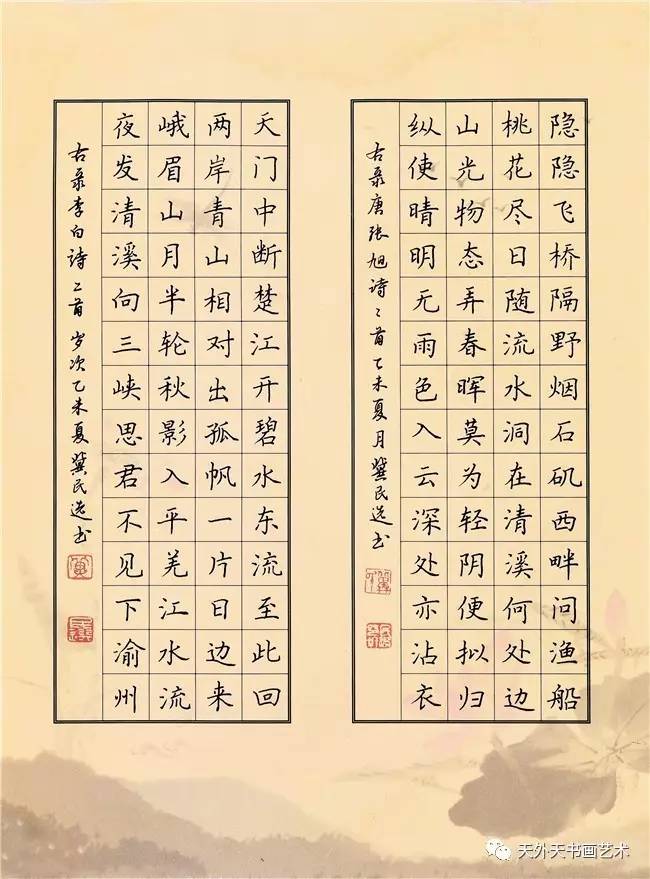 隐隐飞桥隔野烟石矶西畔问渔船
桃花尽日随流水洞在清溪何处边
山光物态弄春晖莫为轻阴便拟归
纵使晴明无雨色入云深处亦沾衣
右录唐张旭诗二首乙未夏月龚民选书
天门中断楚江开碧水东流至此回
两岸青山相对出孤帆一片日边来
峨眉山月半轮秋影入平羌江水流
夜发清溪向三峡思君不见下渝州
右录李白诗二首岁次乙未夏龚民选书
天外天书画艺术